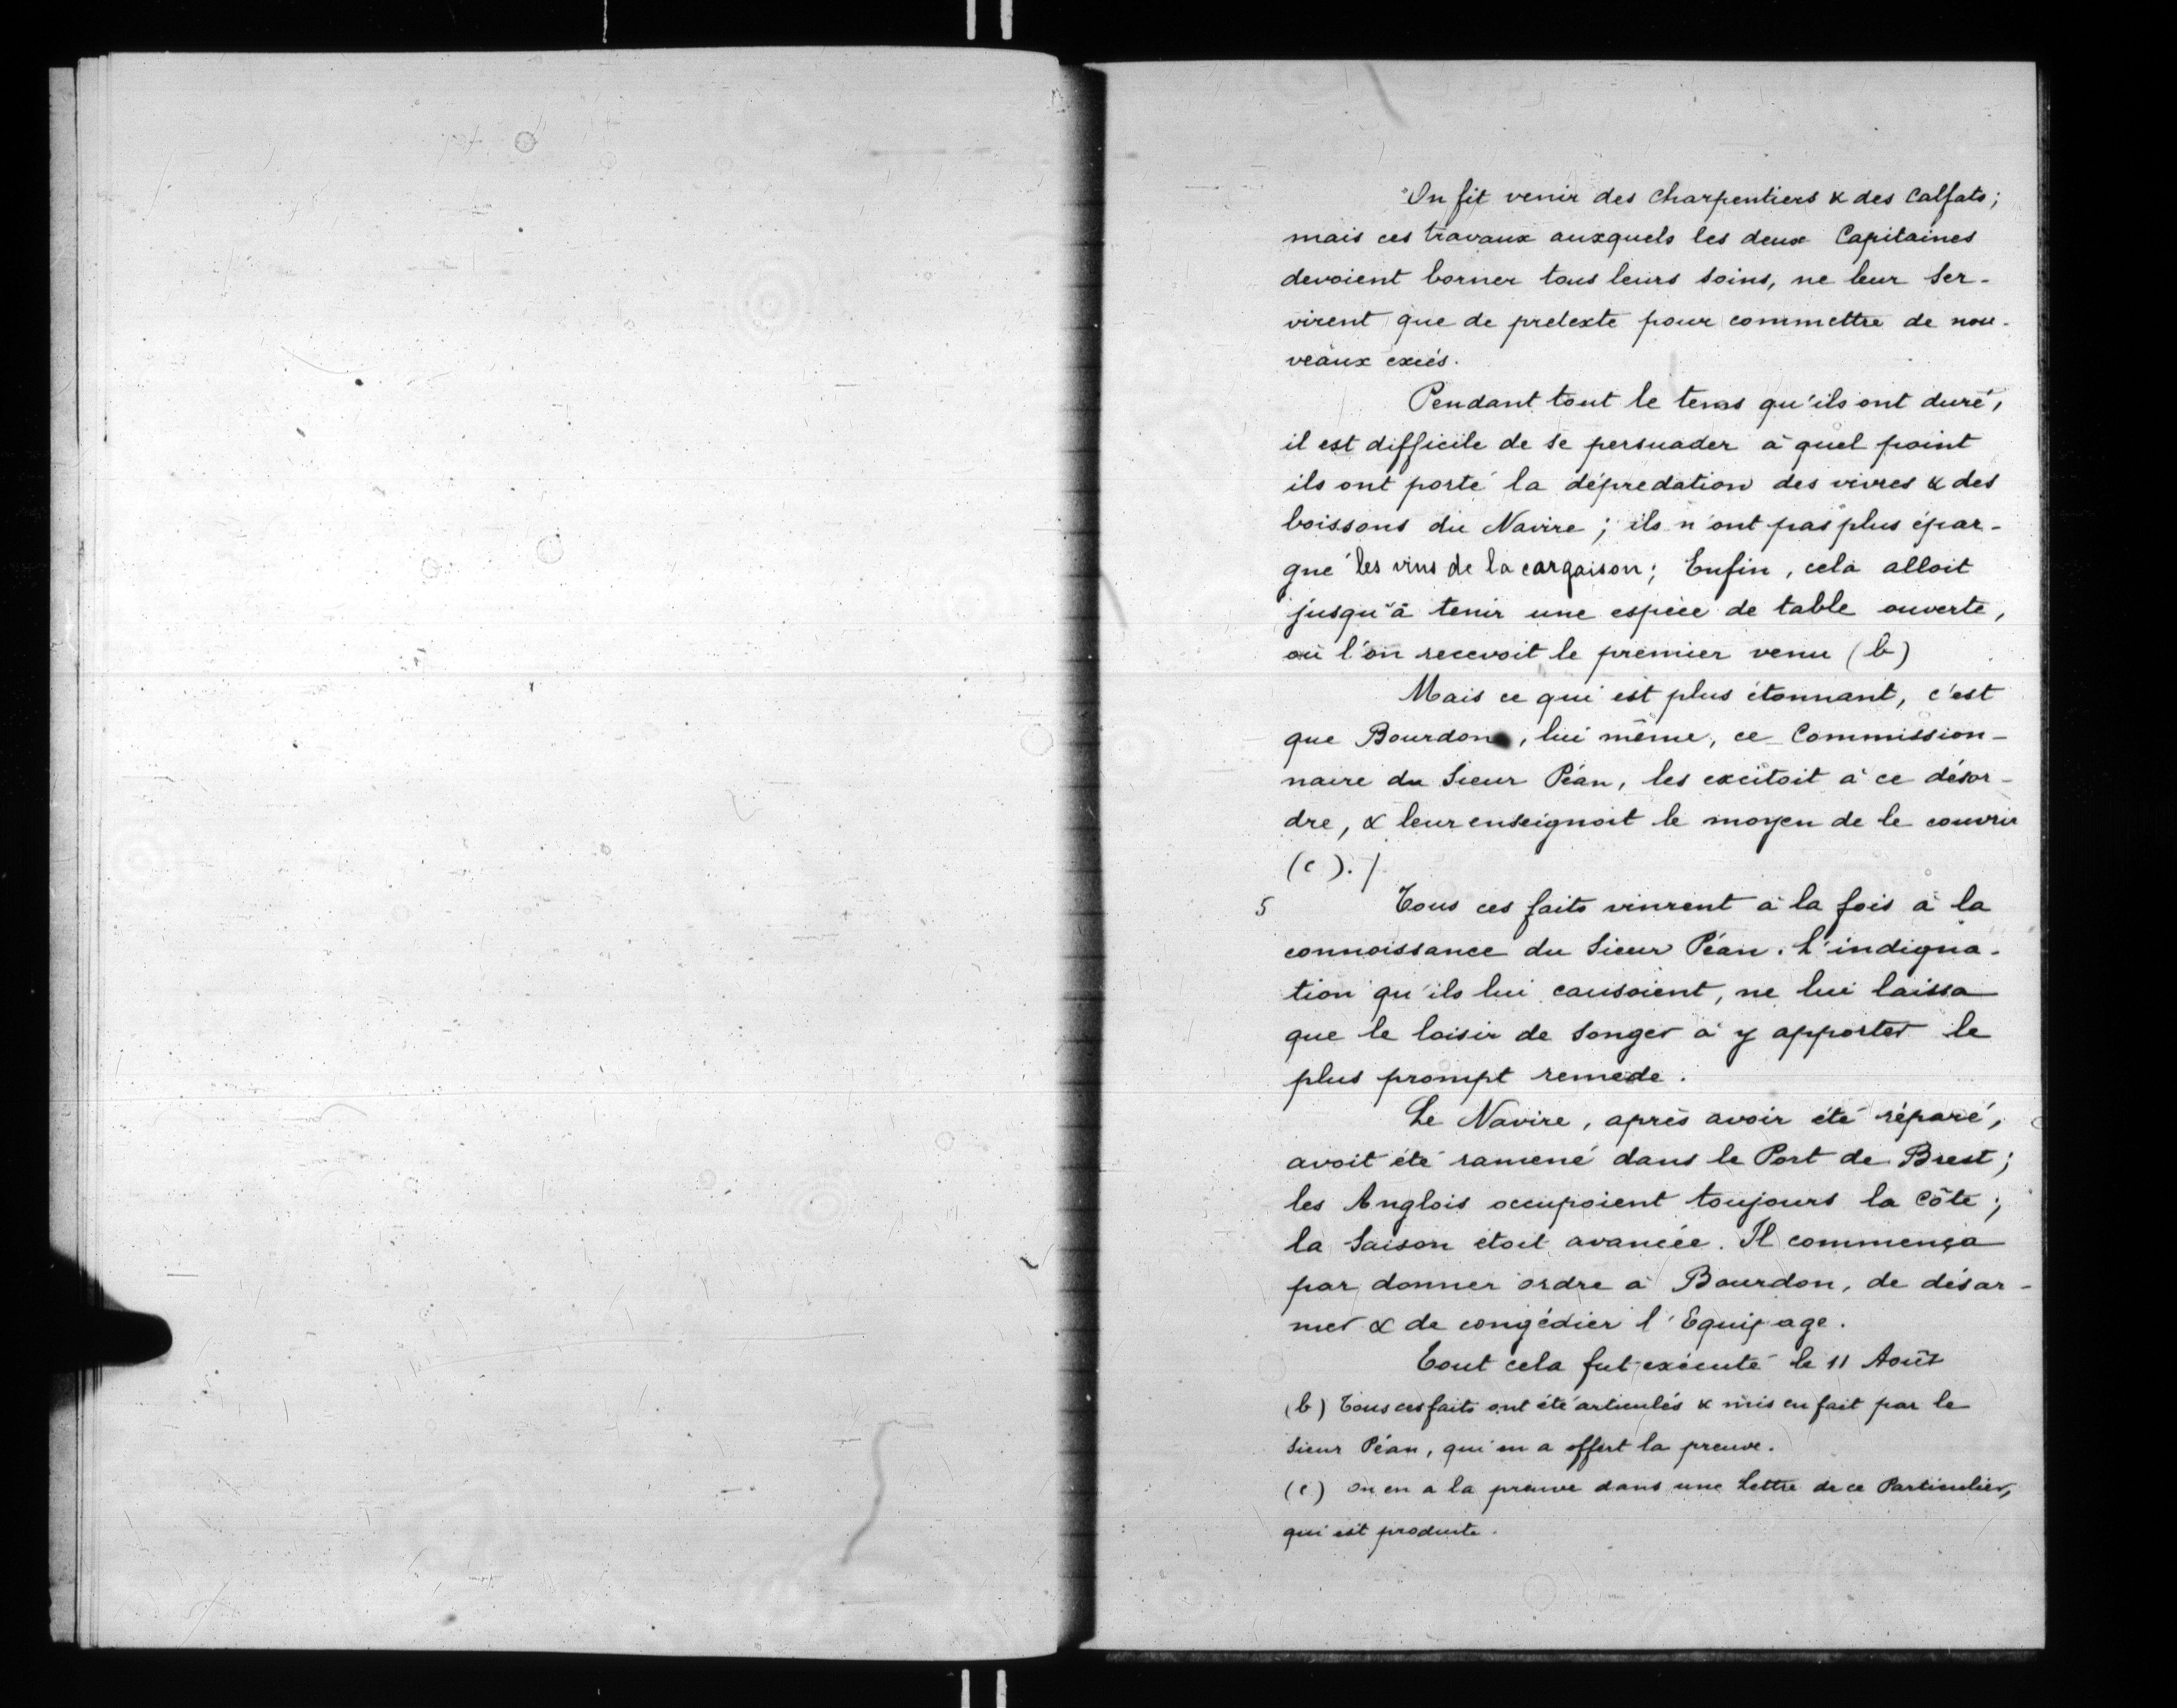 On fit venir des Charpentiers & des Calfats;
mais ces travaux auxquels les deux Capitaines
devoient borner tous leurs soins, ne leur ser-
virent que de pretexte pour commettre de nou-
veaux excès.
Pendant tout le tems qu'ils ont duré,
il est difficile de se persuader à quel point
ils ont porté la dépredation des vivres & des
boissons du Navire; ils n'ont pas plus épar-
gné les vins de la cargaison; Enfin, cela alloit
jusqu'à tenir une espèce de table ouverte,
où l'on recevoit le premier venu (b)
Mais ce qui est plus étonnant, c'est
que Bourdon, lui même, ce Commission-
naire du Sieur Péan, les excitoit à ce désor-
dre, & leur enseignoit le moyen de le couvrir
(c). /
5 Tous ces faits vinrent à la fois à la
connoissance du Sieur Péan. L'indigna-
tion qu'ils lui causoient, ne lui laissa
que le loisir de songer à y apporter le
plus prompt remede.
Le Navire, après avoir été réparé,
avoit été ramené dans le Port de Brest;
les Anglois occupoient toujours la Côte;
la Saison étoit avancée. Il commença
par donner ordre à Bourdon, de désar-
mer & de congédier l'Equipage.
Tout cela fut exécuté le 11 Août
(b) Tous ces faits ont été articulés & mis en fait par le
Sieur Péan, qui en a offert la preuve.
(c) On en a la preuve dans une Lettre de ce Particulier,
qui est produite.